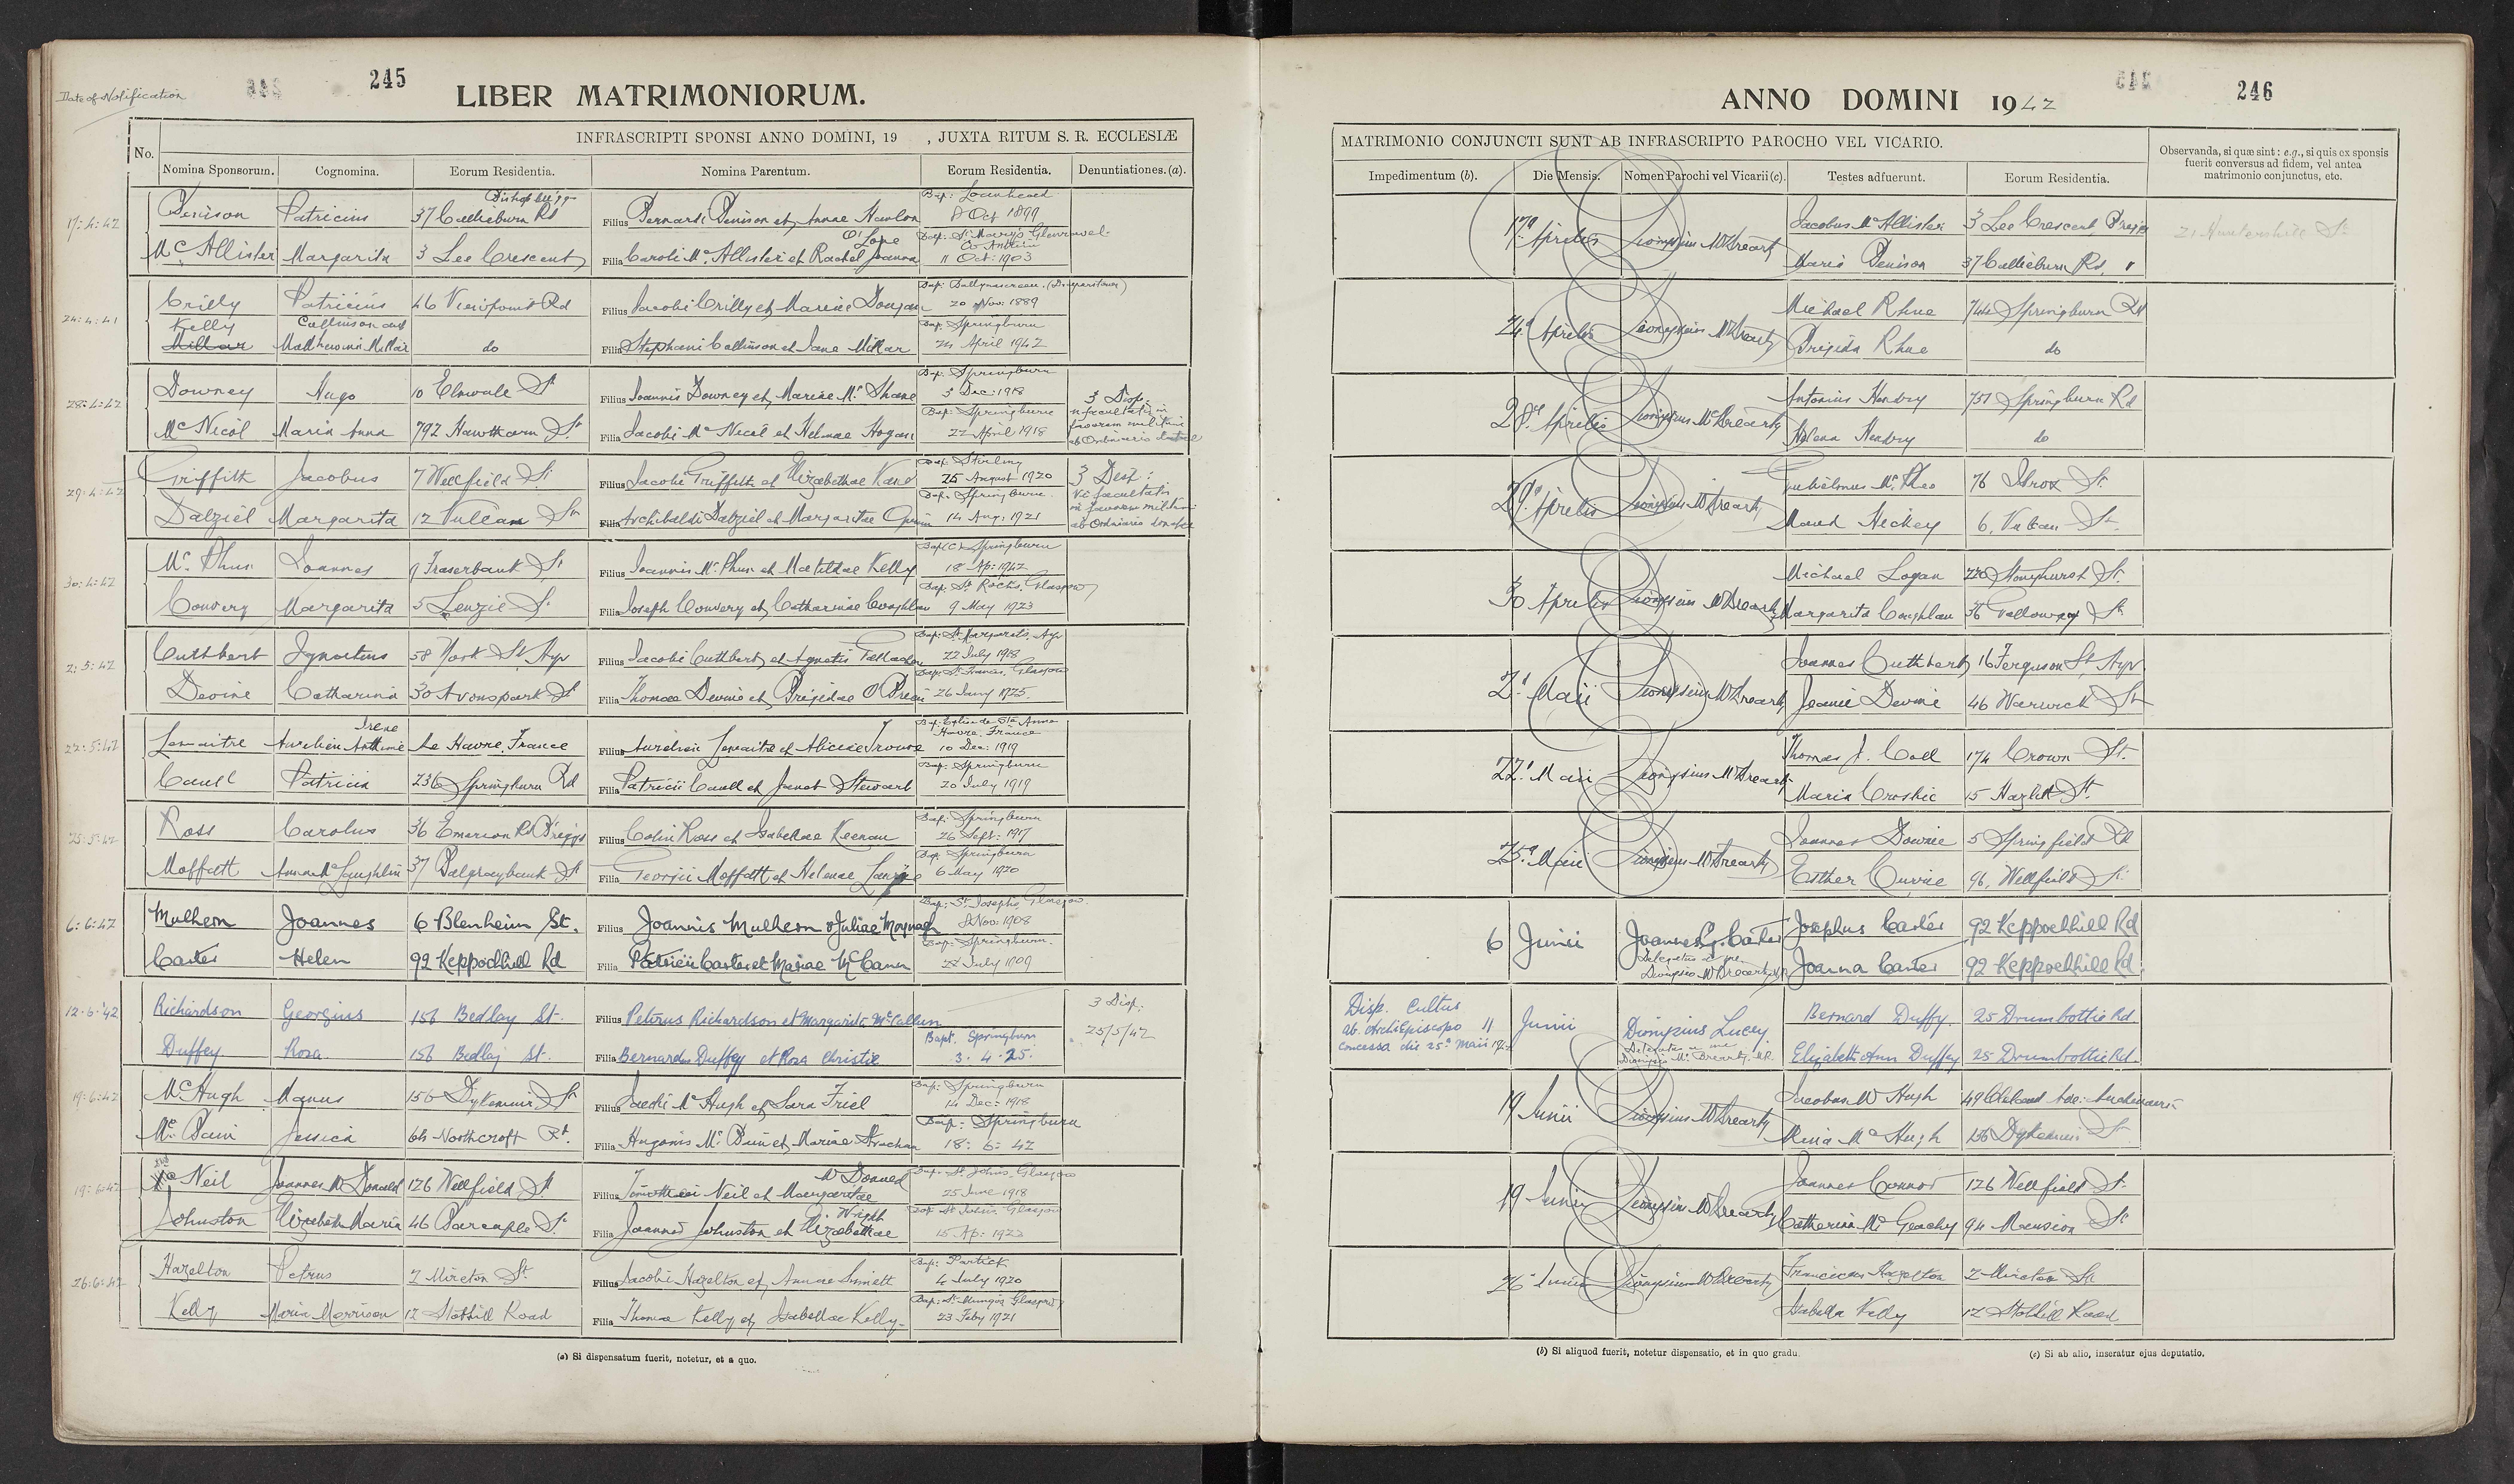 Date of Notification
245
LIBER MATRIMONIORUM.
INFRASCRIPTI SPONSI ANNO DOMINI, 19 , JUXTA RITUM S. R. ECCLESIÆ
No. Nomina Sponsorum. Cognomina. Eorum Residentia. Nomina Parentum. Eorum Residentia. Denuntiationes.(a).
17:4:42 Denison Patricius 37 Callieburn Rd Bishopbriggs Filius Bernardi Denison et Annae Hanlon Bap: Loanhead 8 Oct 1899
McAllister Margarita 3 Lee Crescent Filia Caroli McAllister et Rachel Joanna Bap: St Mary's 11 Oct: 1903
24:4:41 Crilly Patricius 46 Viewpoint Rd Filius Jacobi Crilly et Mariae Dougan Bap: Ballynascreen (Draperstown) 20 Nov: 1889
Kelly Millar Collinson Millar do Filia Stephani Collinson et Jane Millar Bap: Springburn 24 April 1942
28:4:42 Downey Hugo 10 Elmvale St Filius Joannis Downey et Mariae McShane Bap: Springburn 3 Dec: 1918 3 Disp.
McNicol Maria Anna 792 Hawthorn St Filia Jacobi McNicol et Helenae Hogan Bap: Springburn 22 April 1918
29:4:42 Griffith Jacobus 7 Wellfield St Filius Jacobi Griffith et Elizabethae Kane Bap: Stirling 25 August 1920 3 Disp:
Dalziel Margarita 12 Vulcan St Filia Archibaldi Dalziel et Margaritae Bap: Springburn 14 Aug: 1921
30:4:42 Joannes 9 Fraserbank St Filius Joannis et Matildae Kelly Bap (C) Springburn 18 Ap: 1942
Convery Margarita 5 Lenzie St Filia Joseph Convery et Catharinae Coughlan Bap: St Rochs, Glasgow 9 May 1923
2:5:42 Cuthbert Ignatius 58 York St Ayr Filius Jacobi Cuthbert et Agnetis Gallacher Bap: St Margaret's, Ayr 22 July 1918
Devine Catharina 30 Avonspark St Filia Thomae Devine et Brigidae Bap: St Francis, Glasgow 26 1925.
22:5:42 Lemaitre Aurelien Irene Le Havre, France Filius Aurelien Lemaitre et Bap: Eglise de Ste Anne Havre, France 10 Dec: 1919
Caull Patricia 236 Springburn Rd Filia Patricii Caull et Janet Stewart Bap: Springburn 20 July 1919
25:5:42 Ross Carolus 36 Emerson Rd B'riggs Filius Colin Ross et Isabellae Keenan Bap: Springburn 26 Sept: 1917
Moffatt Anna McLaughlin 37 Dalgraybank St Filia Georgii Moffatt et Helenae Bap: Springburn 6 May 1920
6:6:42 Mulhern Joannes 6 Blenheim St. Filius Joannis Mulhern & Juliae Bap: St Josephs, Glasgow 8 Nov: 1908
Carter Helen 92 Keppochhill Rd Filia Patricii Carter et Mariae McCann Bap: Springburn. 28 July 1909
12:6:'42 Richardson Georgius 156 Bedlay St. Filius Petrus Richardson et Margarita McCallum 3 Disp: 25/5/42
Duffey Rosa 156 Bedlay St. Filia Bernardus Duffey et Rosa Christie Bapt. Springburn 3. 4. 25.
19:6:42 McHugh Manus 156 Dykemuir St Filius McHugh et Sara Friel Bap: Springburn 14 Dec: 1918
Jessica 64 Northcroft Rd. Filia Hugonis et Mariae Strachan Bap: Springburn 18: 6: 42
19:6:42 Neil Joannes McDonald 126 Wellfield St Filius Neil et Margaritae McDonald Bap: St Johns, Glasgow 25 June 1918
Johnston Elizabeth Maria 46 Parcaple St Filia Joannes Johnston et Elizabethae Wright Bap: St Johns Glasgow 15 Ap: 1923
26:6:42 Hazelton Petrus 2 Mireton St. Filius Jacobi Hazelton et Annae Sinnett Bap: Partick 4 July 1920
Kelly Maria Morrison 12 Stobhill Road Filia Thomae Kelly et Isabellae Kelly Bap: St Mungos Glasgow 23 Feby 1921
(a) Si dispensatum fuerit, notetur, et a quo.
246
ANNO DOMINI 1942
MATRIMONIO CONJUNCTI SUNT AB INFRASCRIPTO PAROCHO VEL VICARIO.
Impedimentum (b). Die Mensis. Nomen Parochi vel Vicarii (c). Testes adfuerunt. Eorum Residentia.
Observanda, si quæ sint: e.g., si quis ex sponsis
fuerit conversus ad fidem, vel antea
matrimonio conjunctus, etc.
17a Aprilis Dionysius McBrearty Jacobus McAllister 3 Lee Crescent B'riggs
Maria Denison 37 Callieburn Rd. "
24a Aprilis Dionysius McBrearty Michael Rhue 744 Springburn Rd
Brigida Rhue do
28a Aprilis Dionysius McBrearty Antonius Hendry 757 Springburn Rd
Helena Hendry do
29a Aprilis Dionysius McBrearty Gulielmus 76 Ibrox St
Maud Hickey 6, Vulcan St.
30 Aprilis Dionysius McBrearty Michael Logan 220 Stonyhurst St.
Margarita Coughlan 36 Galloway St.
2a Maii Dionysius McBrearty Joannes Cuthbert 16 Ferguson St Ayr
Jeanie Devine 46 Warwick St
22a Maii Dionysius McBrearty Thomas J. Coll 174 Crown St.
Maria Croskie 15 Hazlitt St.
25a Maii Dionysius McBrearty Joannes Downie 5 Springfield Rd
Esther Currie 96, Wellfield St.
6 Junii Joannes G. Carter Josephus Carter 92 Keppochhill Rd
Delegatus a me Dionysio McBrearty Joanna Carter 92 Keppochhill Rd.
Disp. Cultus ab ArchiEpiscopo concessa die 25a Maii 11 Junii Dionysius Lucey Bernard Duffy. 25 Drumbottie Rd
Delegatus a me Dionysius McBrearty. Elizabeth Ann Duffey 25 Drumbottie Rd
19 Junii Dionysius McBrearty Jacobus McHugh 49 Cleland Ave:
Maria McHugh 156 Dykemuir St.
19 Junii Dionysius McBrearty Joannes Connor 126 Wellfield St.
Catherina McGeachy 94 Mansion St
26a Junii Dionysius McBrearty Franciscus Hazelton 2 Mireton St
Isabella Kelly 12 Stobhill Road
(b) Si aliquod fuerit, notetur dispensatio, et in quo gradu.
(c) Si ab alio, inseratur ejus deputatio.